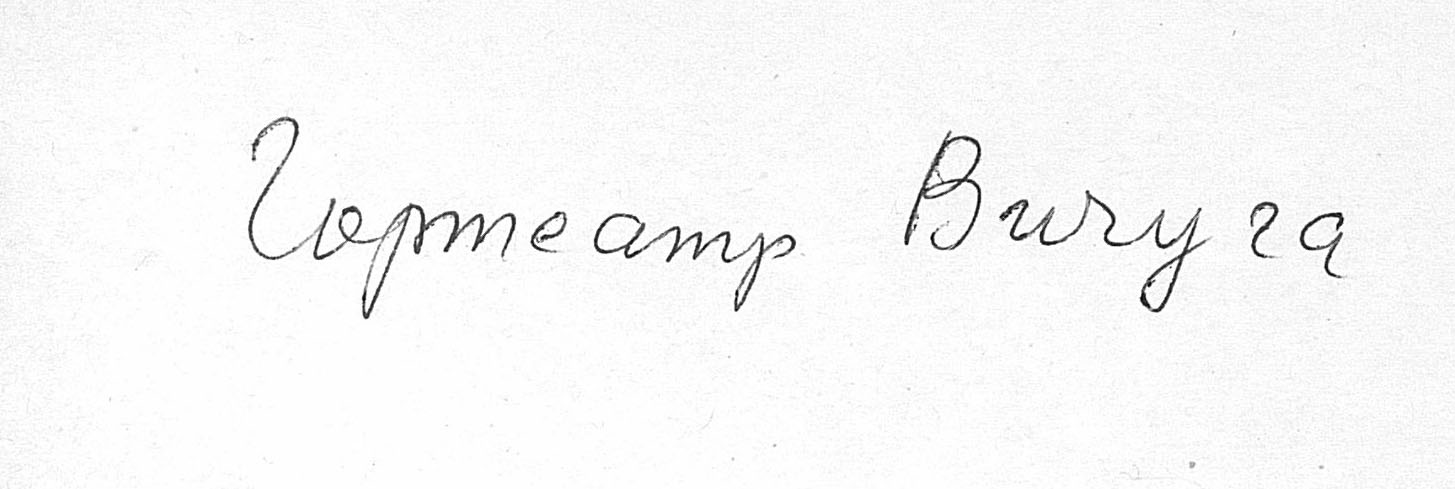 Гортеатр Вичуга